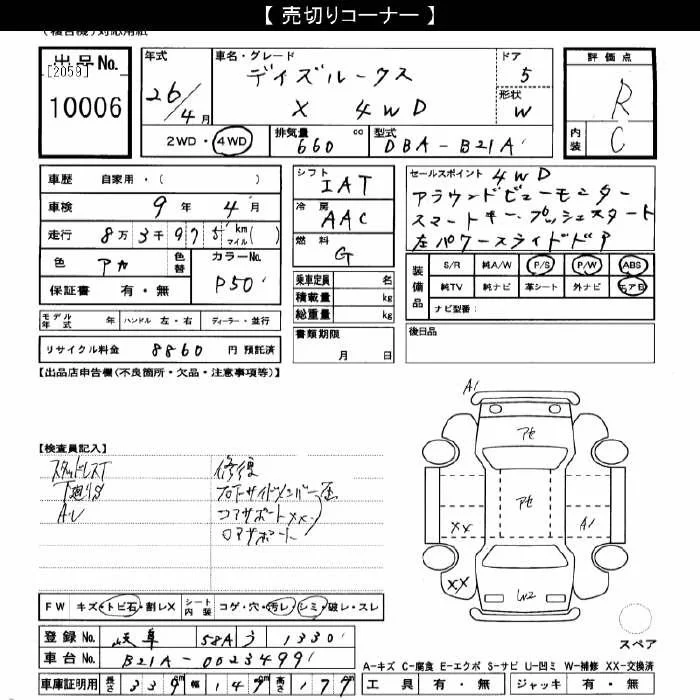 【 売切りコーナー 】
(複合機)対応用紙
出品No. [2059] 10006
年式 26/4月
車名・グレード デイズルークス
X 4WD
ドア 5
形状 W
2WD・4WD
排気量 660 cc
型式 DBA-B21A
評価点 R
内装 C
車歴 自家用・( )
車検 9年 4月
走行 8万3千975 km マイル( )
色 アカ 色替 カラーNo. P50
保証書 有・無
シフト IAT
冷房 AAC
燃料 G
乗車定員 名
積載量 kg
総重量 kg
書類期限
月 日
セールスポイント 4WD
アラウンドビューモニター
スマートキー・プッシュスタート
左パワースライドドア
装備品 S/R 純A/W P/S P/W ABS
純TV 純ナビ 革シート 外ナビ エアB
ナビ型番:
後日品
モデル年式 年 ハンドル 左・右 ディーラー・並行
リサイクル料金 8860 円 預託済
【出品店申告欄(不良箇所・欠品・注意事項等)】
【検査員記入】
スタッドレスT
A・V
修復
コアサポートxx
ロアサポート
A1
アセ
アセ
XX
A1
XX
W2
スペア
FW キズ・トビ石・割レX シート内装 コゲ・穴・汚レ・シミ・破レ・スレ
登録No. 岐阜 58A う 1330
車台No. B21A-0023499
車庫証明用 長さ 339cm 幅 147cm 高さ 177
A-キズ C-腐食 E-エクボ S-サビ U-凹ミ W-補修 XX-交換済
工具 有・無 ジャッキ 有・無